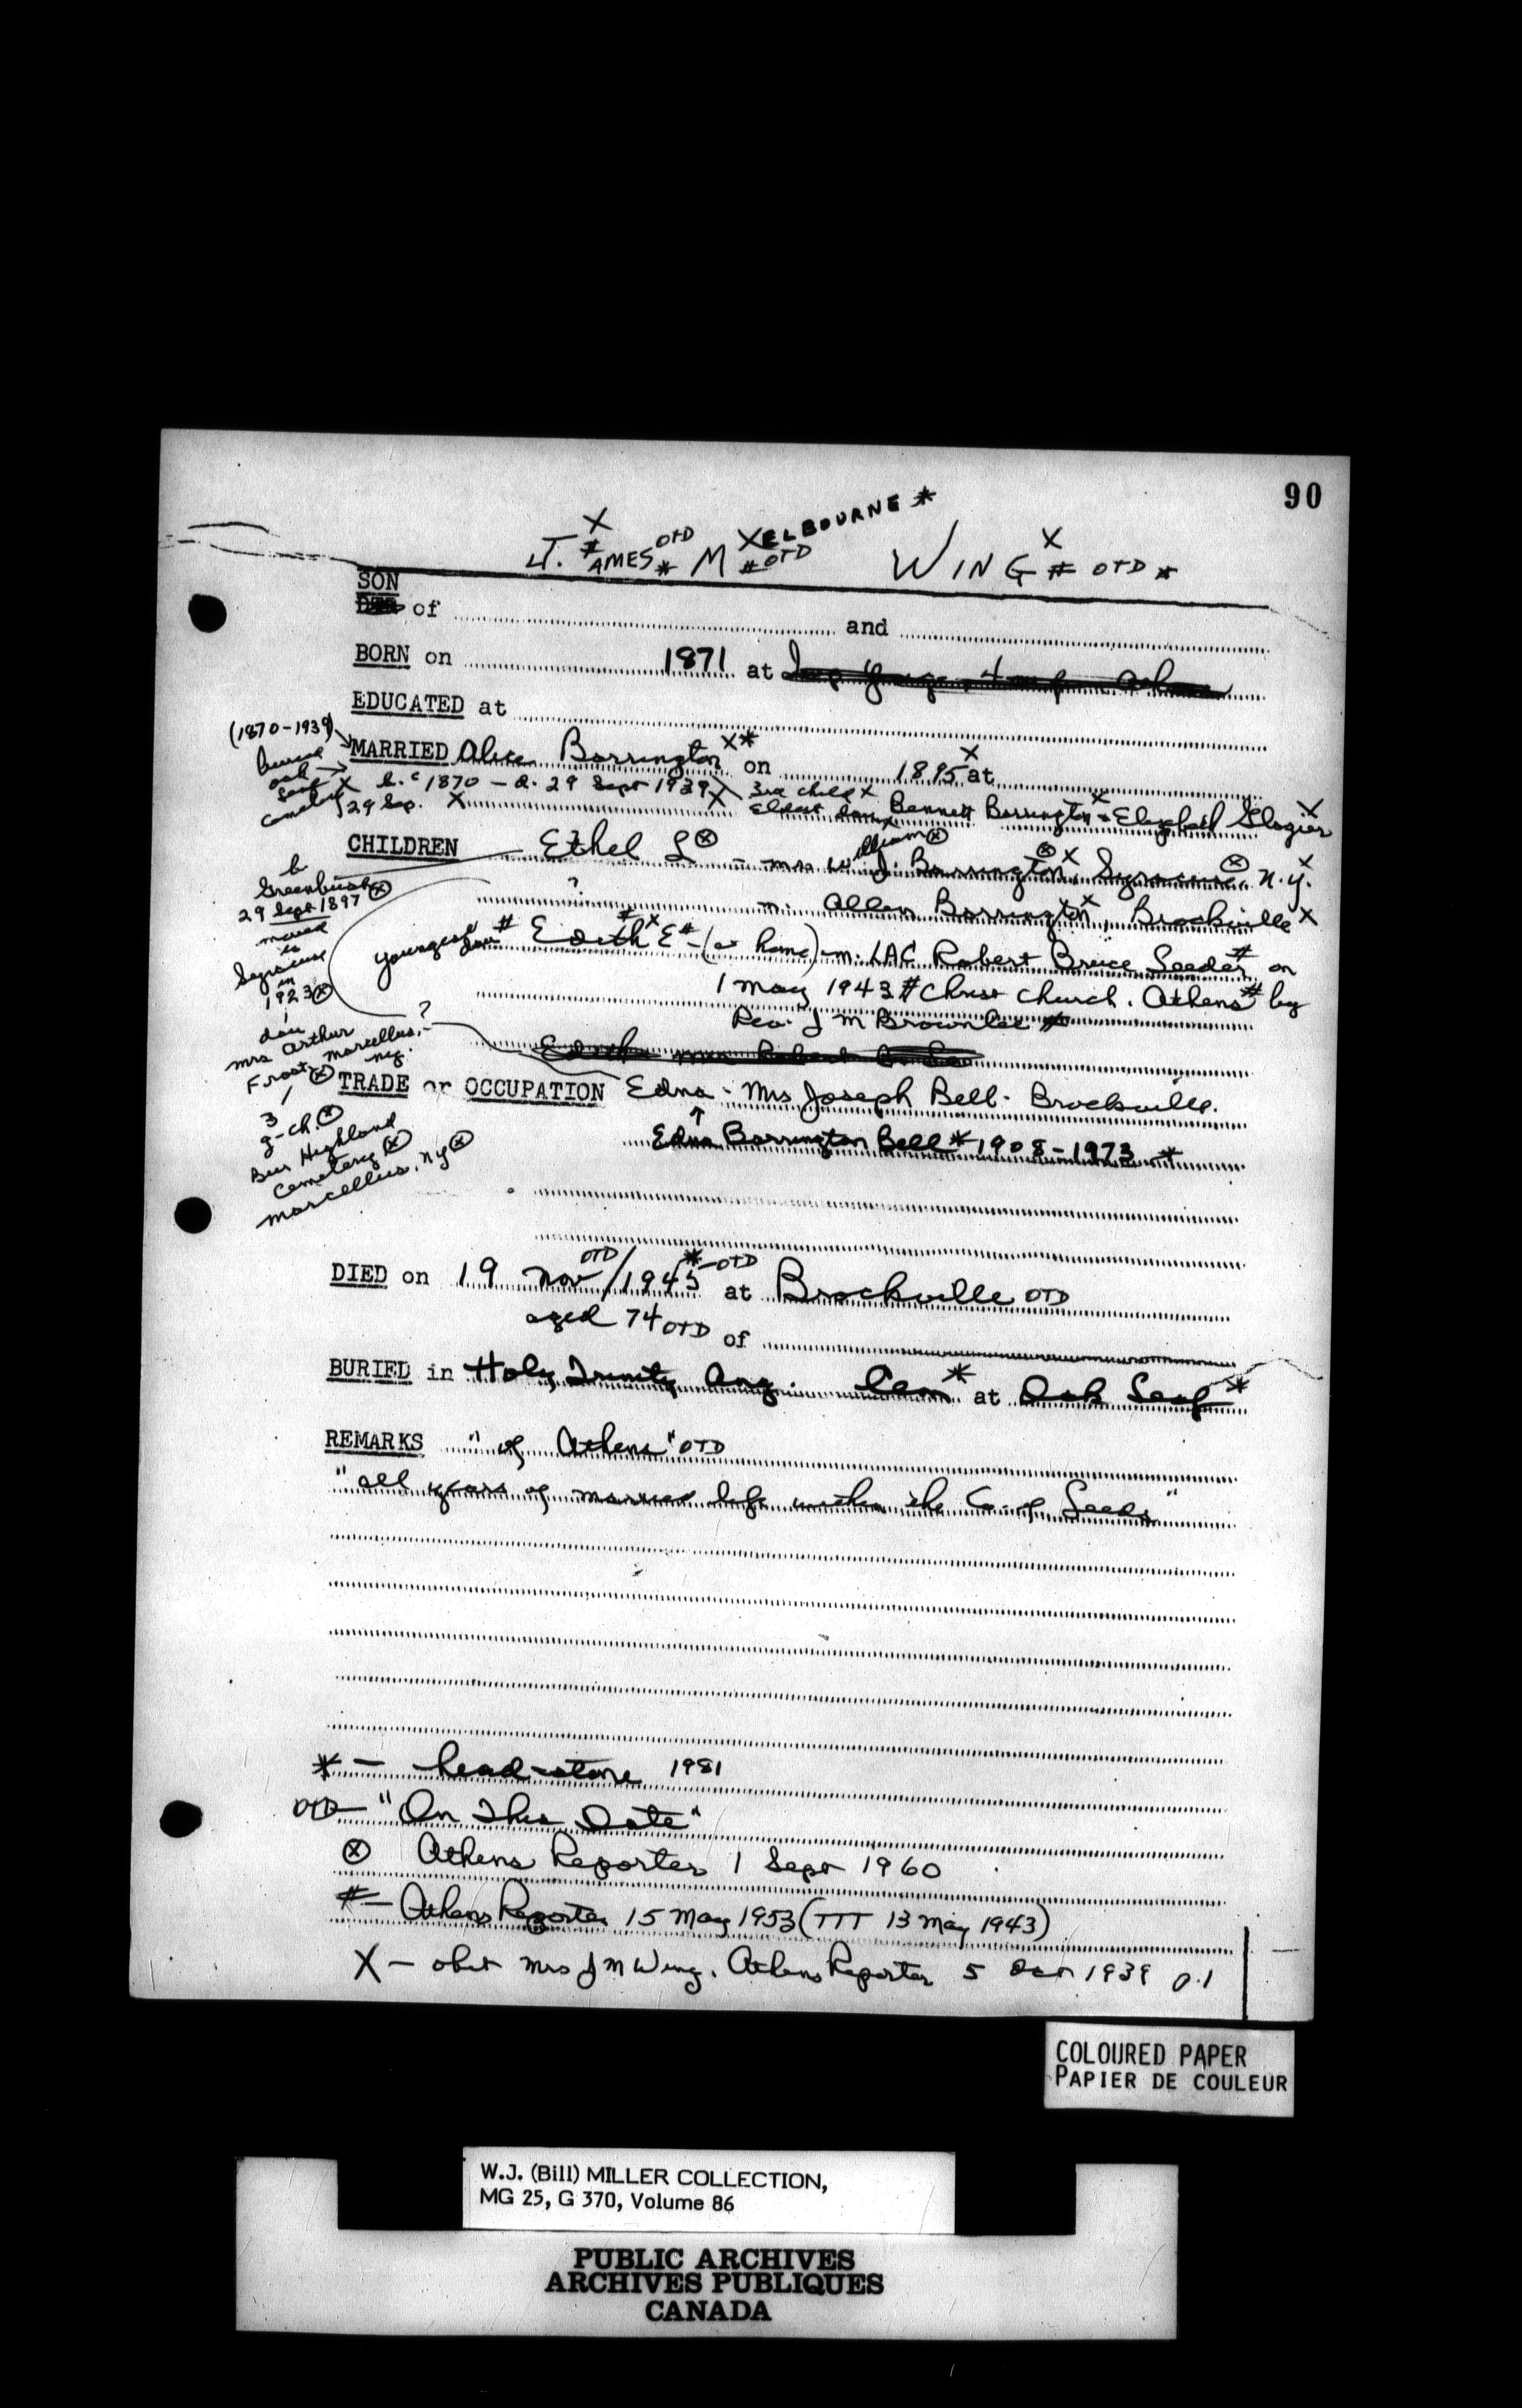 90
J.AMES * OTD MELBOURNE * # OTD WING # OTD *
SON
of and
BORN on 1871 at
EDUCATED at
(1870-1939)
MARRIED Alice Barrington X* on 1895 X at
buried
oak
Leaf
cemetery X
29 Sep. X
b. c 1870 - d. 29 Sept 1939 X
3rd child X
Eldest dau Bennett Barrington X & Elizabeth Glazier X
CHILDREN Ethel L ⊗ - mrs William ⊗ J. Barrington ⊗ X, Syracuse ⊗, N.Y. X
? m. Allen Barrington X, Brockville X
youngest dau # Edith # X E # - (at home) - m. LAC Robert Bruce Leeder # on
1 May 1943 # Christ Church, Athens # by
Rev. J M Brownlee #
b
Greenbush ⊗
29 Sept 1897 ⊗
moved
to
Syracuse
in
1923 ⊗
dau
mrs Arthur
Frost, Marcellus, N.Y. ⊗
3
g-ch. ⊗
Bur Highland
Cemetery ⊗
Marcellus, N.Y ⊗
?
TRADE or OCCUPATION Edna - Mrs Joseph Bell - Brockville.
Edna Barrington Bell * 1908-1973 *
DIED on 19 Nov OTD/1945 *-OTD at Brockville OTD
aged 74 OTD of
BURIED in Holy Trinity Ang. Cem * at Oak Leaf *
REMARKS "of Athens" OTD
"all years of married life within the Co. of Leeds"
* - head-stone 1981
OTD - "On This Date"
⊗ Athens Reporter 1 Sept 1960
# - Athens Reporter 15 May 1953 (TTT 13 May 1943)
X - obit Mrs J M Wing, Athens Reporter 5 Oct 1939 p.1
COLOURED PAPER
PAPIER DE COULEUR
W.J. (Bill) MILLER COLLECTION,
MG 25, G 370, Volume 86
PUBLIC ARCHIVES
ARCHIVES PUBLIQUES
CANADA